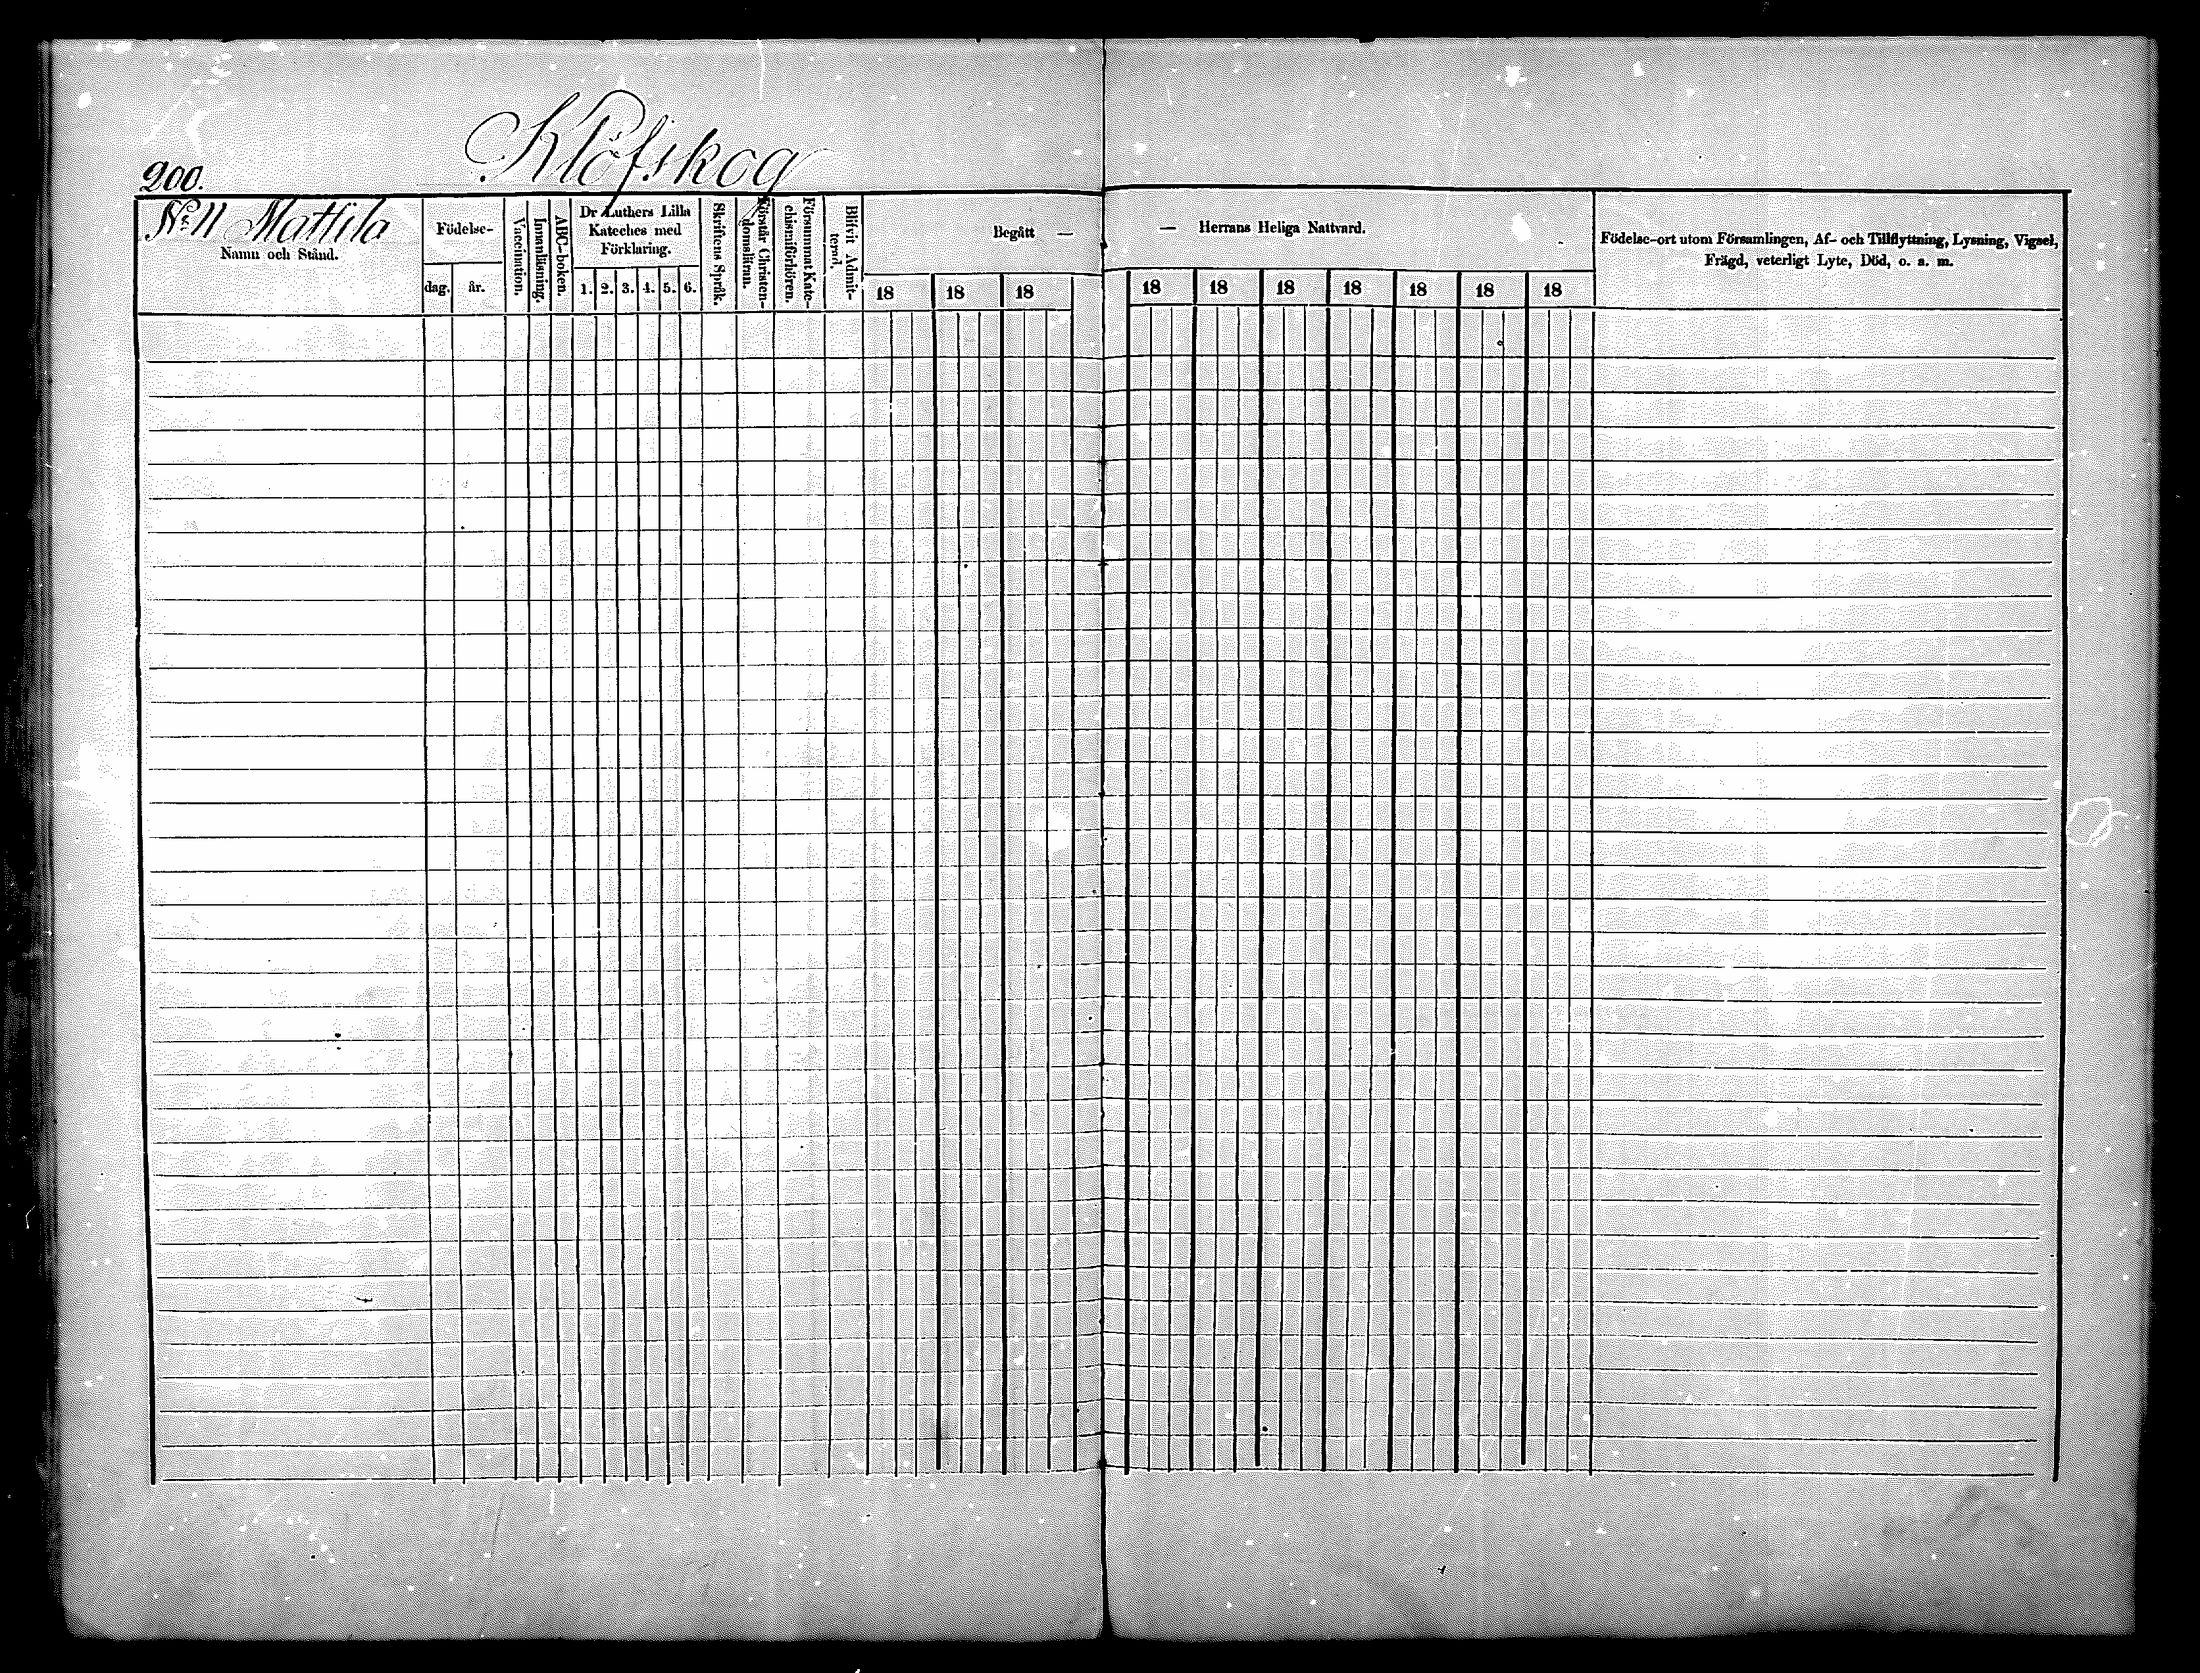 Klöfskog
200.
No 11 Mattila
Namn och Stånd.
Födelse-
dag.
år.
Vaccination.
Innanläsning.
ABC-boken.
Dr Luthers Lilla
Kateches med
Förklaring.
1. 2. 3. 4. 5. 6.
Skriftens Språk.
Förstår Christen-
domsläran.
Försummat Kate-
chismiförhören.
Blifvit Admit-
terad.
Begått —
18 18 18
— Herrans Heliga Nattvard.
18 18 18 18 18 18 18
Födelse-ort utom Församlingen, Af- och Tillflyttning, Lysning, Vigsel,
Frägd, veterligt Lyte, Död, o. s. m.